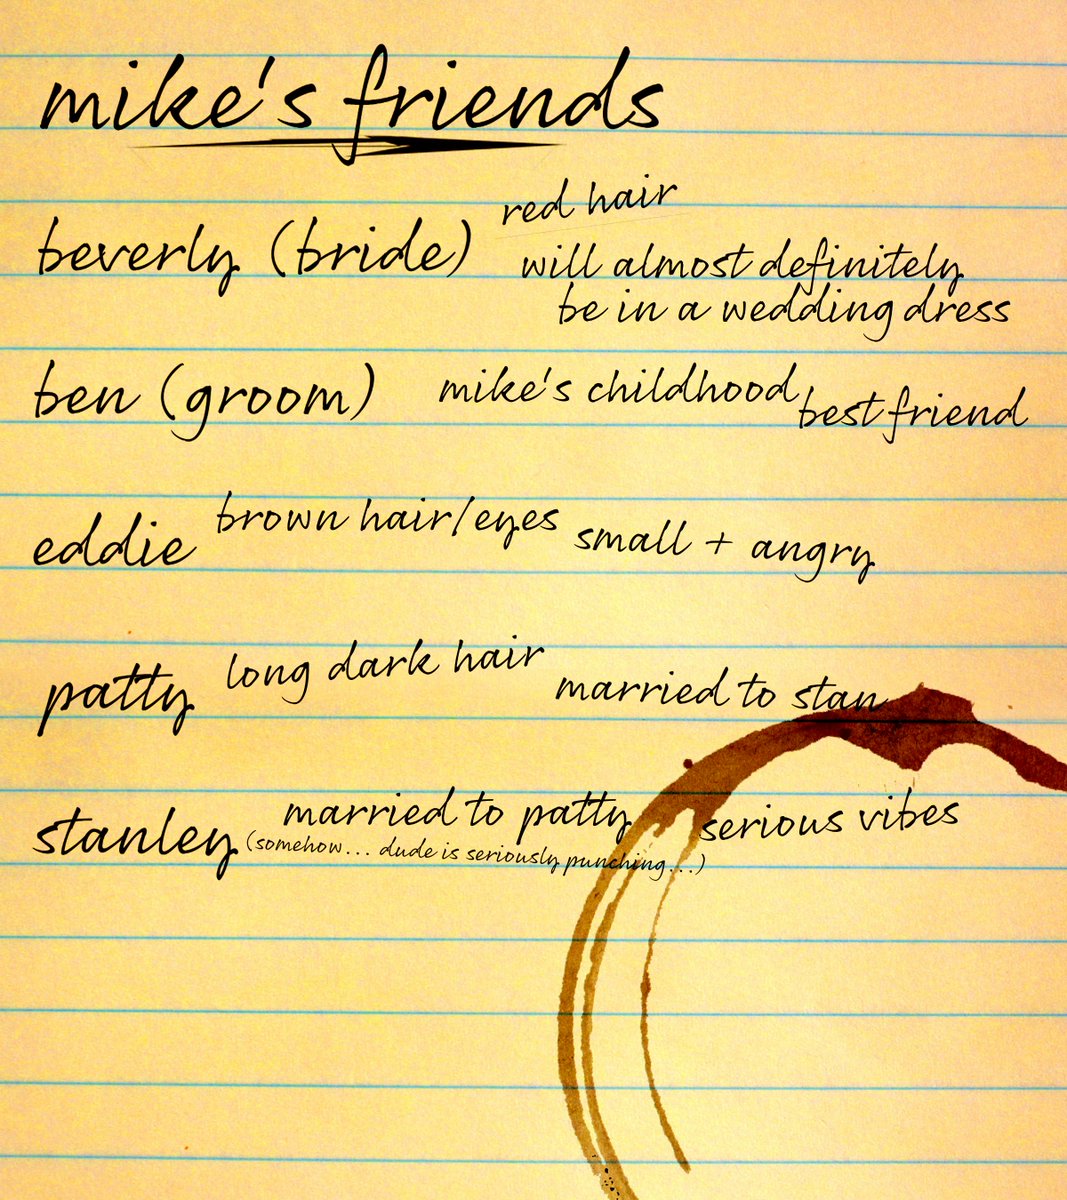 mike's friends
beverly (bride) red hair
will almost definitely
be in a wedding dress
ben (groom) mike's childhood best friend
eddie brown hair/eyes small + angry
patty long dark hair married to stan
stanley married to patty serious vibes
(somehow... dude is seriously punching...)